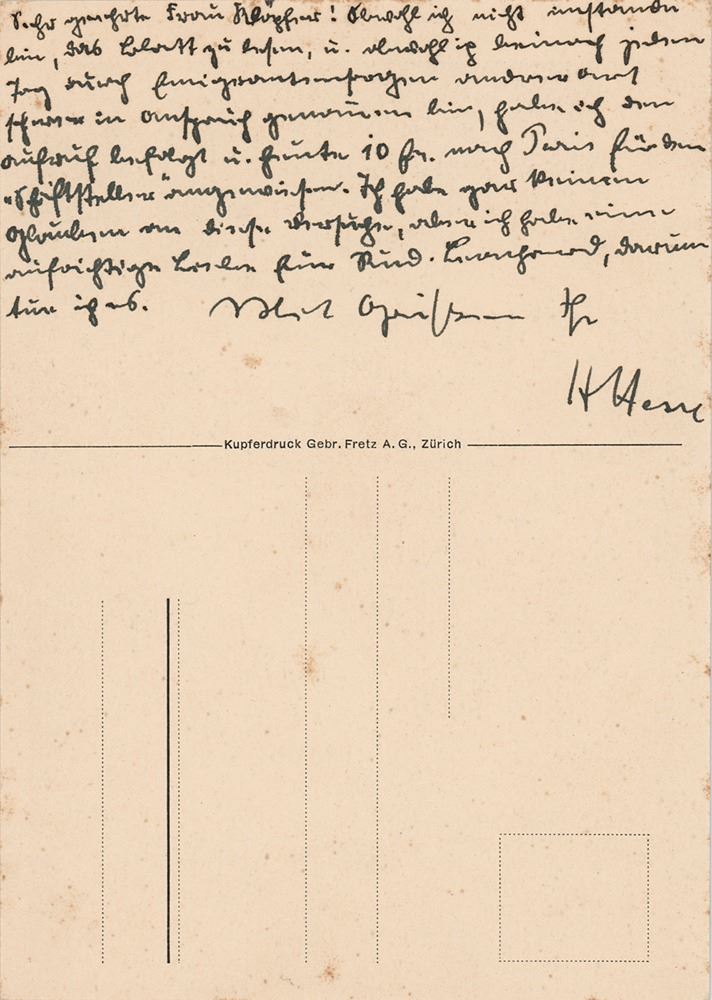 Sehr geehrte Frau Klöpfer! Obwohl ich nicht imstande
bin, das Blatt zu lesen, u. obwohl ich beinah jeden
Tag durch Emigrantensorgen andrer Art
schwer in Anspruch genommen bin, habe ich den
Aufruf befolgt u. heute 10 fr. nach Paris für den
"Schriftsteller" angewiesen. Ich habe gar keinen
Glauben an diese Versuche, aber ich habe eine
aufrichtige Liebe für Rud. Leonhard, darum
tue ich es. Mit Grüssen Ihr
H Hesse
Kupferdruck Gebr. Fretz A. G., Zürich